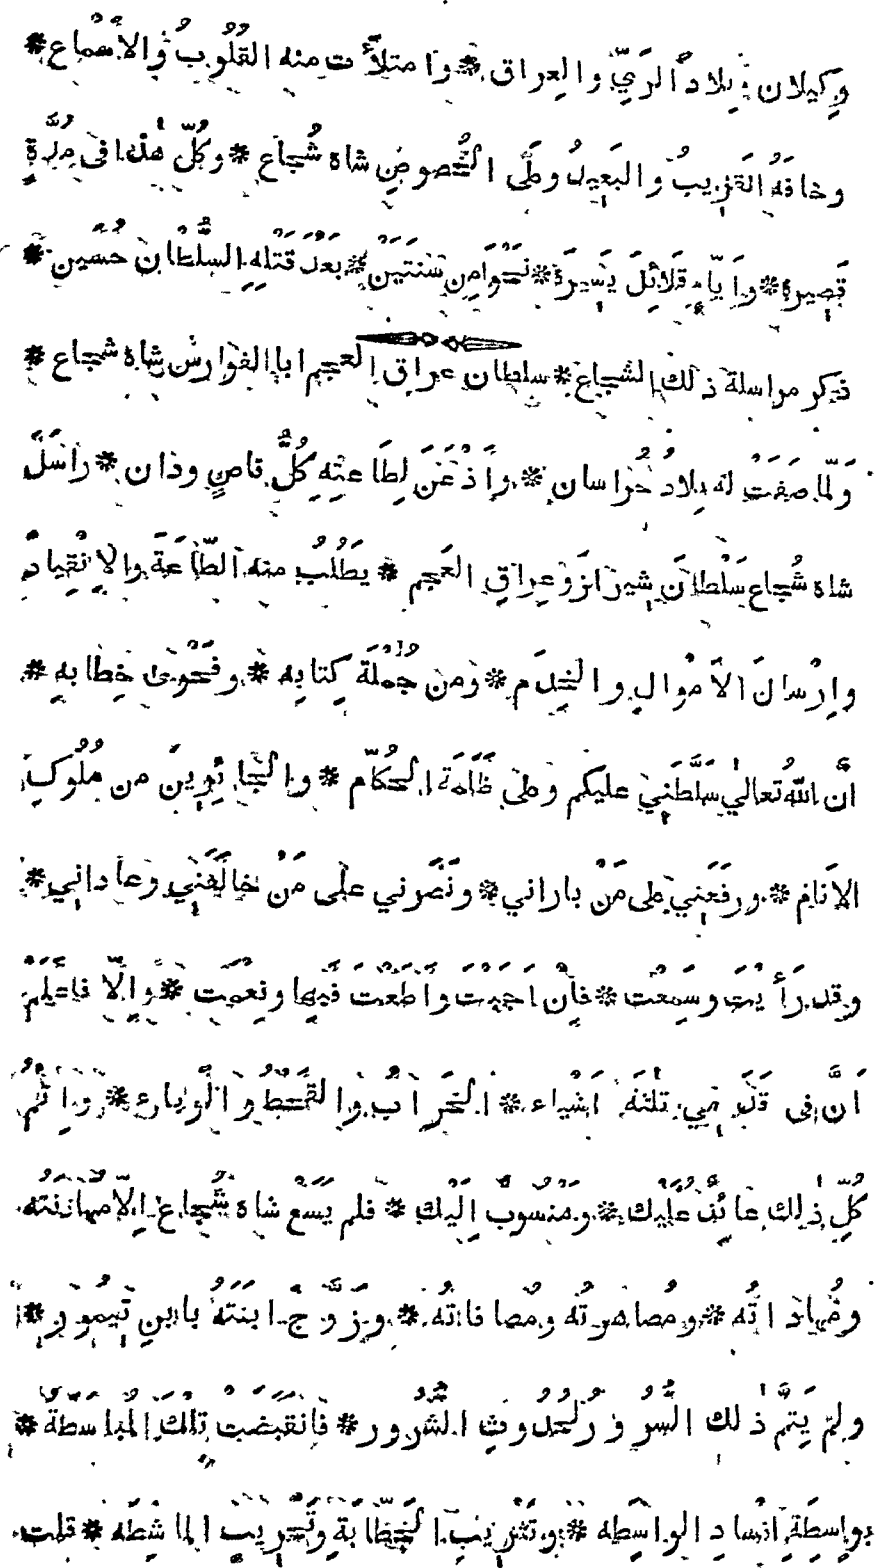 وكيلان وبلادُ الرَيِّ والعراق * وامتلأت منه القُلُوبُ والأسْماع *
وخافهُ القَريبُ والبَعِيدُ وعلَى الخُصوصِ شاه شُجاع * وكُلّ هذا فى مُدَّةٍ
قَصِيرة * وأيّامٍ قلائِلَ يَسِيرَة * نَحْوًا مِن سَنتَيَنْ * بَعْدَ قَتْلِهِ السُّلْطانَ حُسَين *
ذكر مراسلة ذلك الشجاع * سلطان عراق العجم ابا الفوارس شاه شجاع *
وَلمّا صَفَتْ له بِلادُ خُراسان * وأَذْعَنَ لِطَاعتِهِ كُلُّ قاصٍ ودَان * راسَلَ
شاه شُجاع سَلْطانَ شِيرازَ وَعِراقِ العَجم * يَطْلُبُ منه الطّاعَةَ والانْقِيادَ
وارْسالَ الأَمْوالِ والخِدَم * ومن جُمْلَة كِتابِه * وفَحْوىٰ خِطابِه *
أنَّ اللّٰهُ تعالىٰ سَلَّطَنِي عليكم وعلى ظَلَمَة الحُكاّم * والجَائِرِينَ من مُلُوكِ
الأنام * ورفَعَنِي على مَنْ باراني * ونَصَرني علٰى مَنْ خالَفَنِي وَعاداني *
وقد رَأيْتَ وسَمِعْت * فاِنْ اَجَبْتَ واَطَعْت فَبِها ونِعْمَت * وَاِلّا فاعْلَمْ
اَنَّ فِى قدَمِي ثلٰثَة اَشْياء * الخَرابُ والقَحْطُ والوَباء * واِثْمُ
كُلِّ ذٰلك عَائِدٌ عَلَيْك * ومَنْسُوبٌ اِلَيْك * فلم يَسَعْ شاه شُجاع اِلّا مُهادَنَتُه
ومُهاداتُه * ومُصاهرتُه ومُصافاتُه * وزَوَّجَ ابنَتَهُ بابنِ تَيمُور *
ولم يَتِمَّ ذٰلك السُّرورُ لحُدُوثِ الشُّرُور * فانْقَبَضَتْ تِلْكَ المُباسَطَةُ *
بواسِطَةِ اِفْسادِ الواسِطه * وتَخْرِيبِ الخَطّابَةِ وتَخْرِيبِ الماشِطَه * قلت